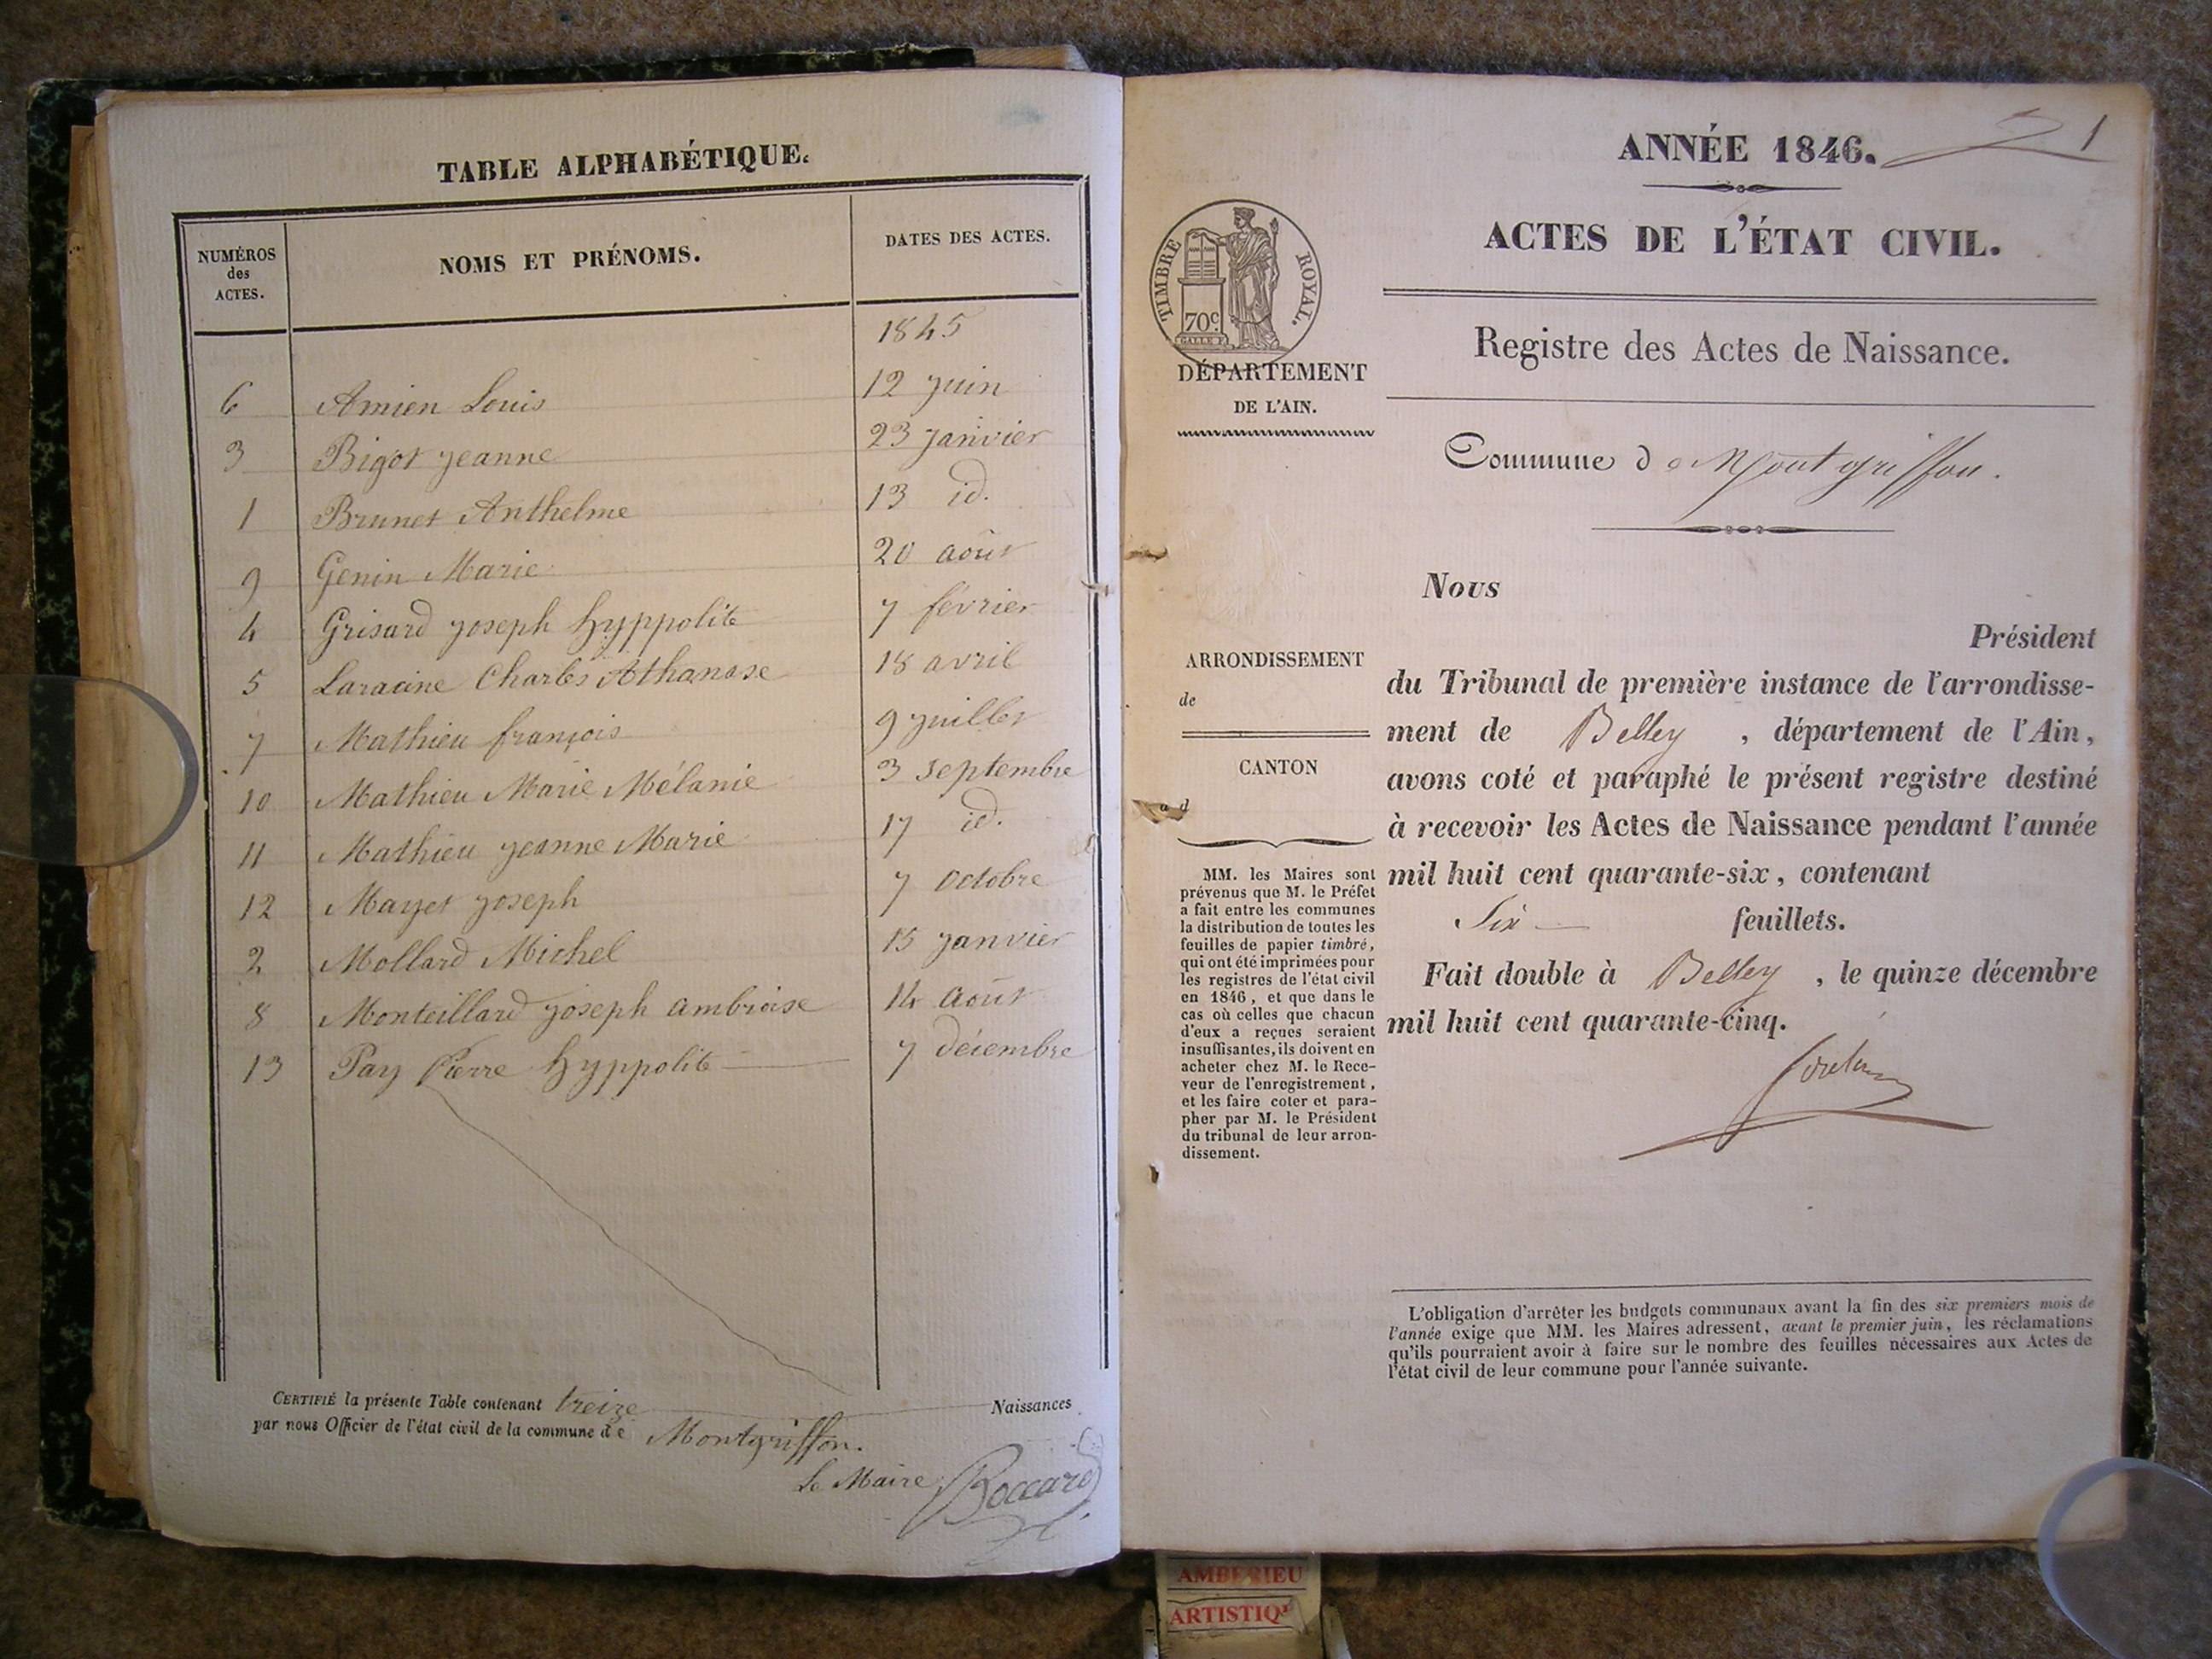 TABLE ALPHABÉTIQUE.
NUMÉROS des ACTES. NOMS ET PRÉNOMS. DATES DES ACTES.
1845
6 Amien Louis 12 juin
3 Bigot jeanne 23 janvier
1 Brunet Anthelme 13 id.
9 Genin Marie 20 août
4 Grisard joseph hyppolite 7 février
5 Laracine Charles Athanase 18 avril
7 Mathieu françois 9 juillet
10 Mathieu Marie Mélanie 3 septembre
11 Mathieu jeanne Marie 17 id.
12 Mayet joseph 7 octobre
2 Mollard Michel 15 janvier
8 Monteillard joseph ambroise 14 août
13 Pay Pierre hyppolite 7 décembre
CERTIFIÉ la présente Table contenant treize Naissances
par nous Officier de l'état civil de la commune de Montgriffon.
Le Maire Boccard
ANNÉE 1846. 1
ACTES DE L'ÉTAT CIVIL.
TIMBRE ROYAL.
70c.
GALLE F.
DÉPARTEMENT
DE L'AIN.
Registre des Actes de Naissance.
Commune de Montgriffon.
Nous
Président
du Tribunal de première instance de l'arrondisse-
ment de Belley, département de l'Ain,
avons coté et paraphé le présent registre destiné
à recevoir les Actes de Naissance pendant l'année
mil huit cent quarante-six, contenant
Six feuillets.
Fait double à Belley, le quinze décembre
mil huit cent quarante-cinq.
ARRONDISSEMENT
de
CANTON
d
MM. les Maires sont
prévenus que M. le Préfet
a fait entre les communes
la distribution de toutes les
feuilles de papier timbré,
qui ont été imprimées pour
les registres de l'état civil
en 1846, et que dans le
cas où celles que chacun
d'eux a reçues seraient
insuffisantes, ils doivent en
acheter chez M. le Rece-
veur de l'enregistrement,
et les faire coter et para-
pher par M. le Président
du tribunal de leur arron-
dissement.
L'obligation d'arrêter les budgets communaux avant la fin des six premiers mois de
l'année exige que MM. les Maires adressent, avant le premier juin, les réclamations
qu'ils pourraient avoir à faire sur le nombre des feuilles nécessaires aux Actes de
l'état civil de leur commune pour l'année suivante.
AMBERIEU
ARTISTIQ